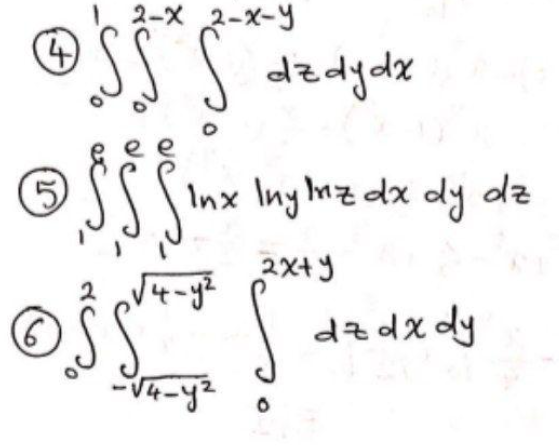 ④ ∫₀¹ ∫₀^{2-x} ∫₀^{2-x-y} dz dy dx
⑤ ∫₁^e ∫₁^e ∫₁^e ln x ln y ln z dx dy dz
⑥ ∫₀² ∫_{-√(4-y²)}^{√(4-y²)} ∫₀^{2x+y} dz dx dy